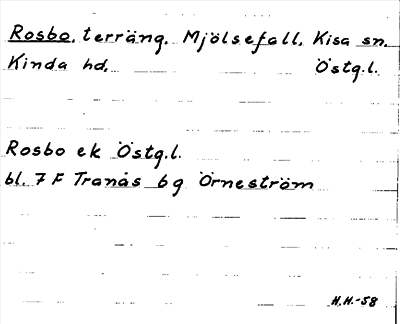 Rosbo, terräng. Mjölsefall, Kisa sn.
Kinda hd. Östg.l.
Rosbo ek Östg.l.
bl. 7 F Tranås 6 g Örneström
H.H.-58